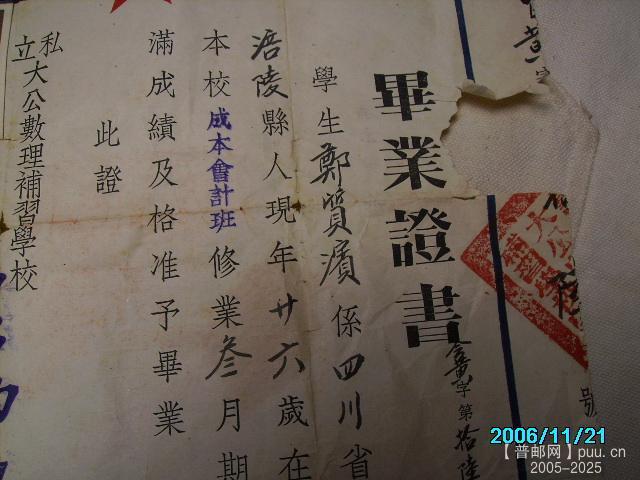 畢業證書
學第拾陸
號
學生鄭質濱係四川省
涪陵縣人現年廿六歲在
本校成本會計班修業叁月期
滿成績及格准予畢業
此證
私立大公數理補習學校
2006/11/21
【普邮网】puu.cn
2005-2025